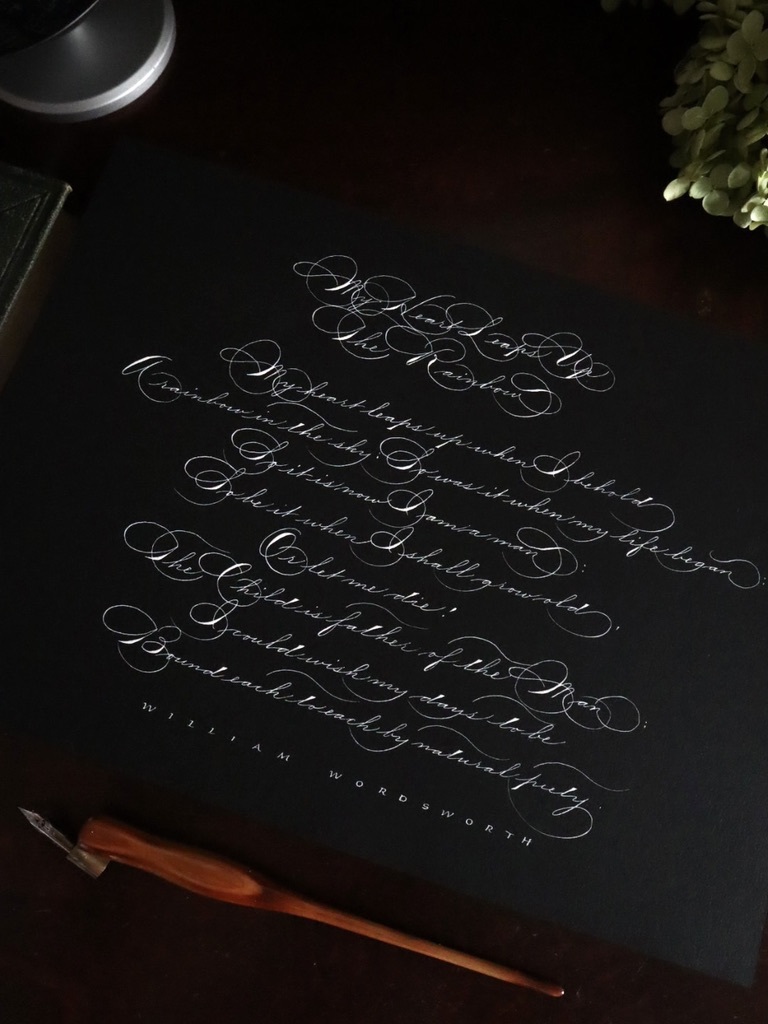 My Heart Leaps Up
The Rainbow
My heart leaps up when I behold
A rainbow in the sky: So was it when my life began:
So it is now I am a man:
So be it when I shall grow old,
Or let me die!
The Child is father of the Man:
I could wish my days to be
Bound each to each by natural piety.
WILLIAM WORDSWORTH